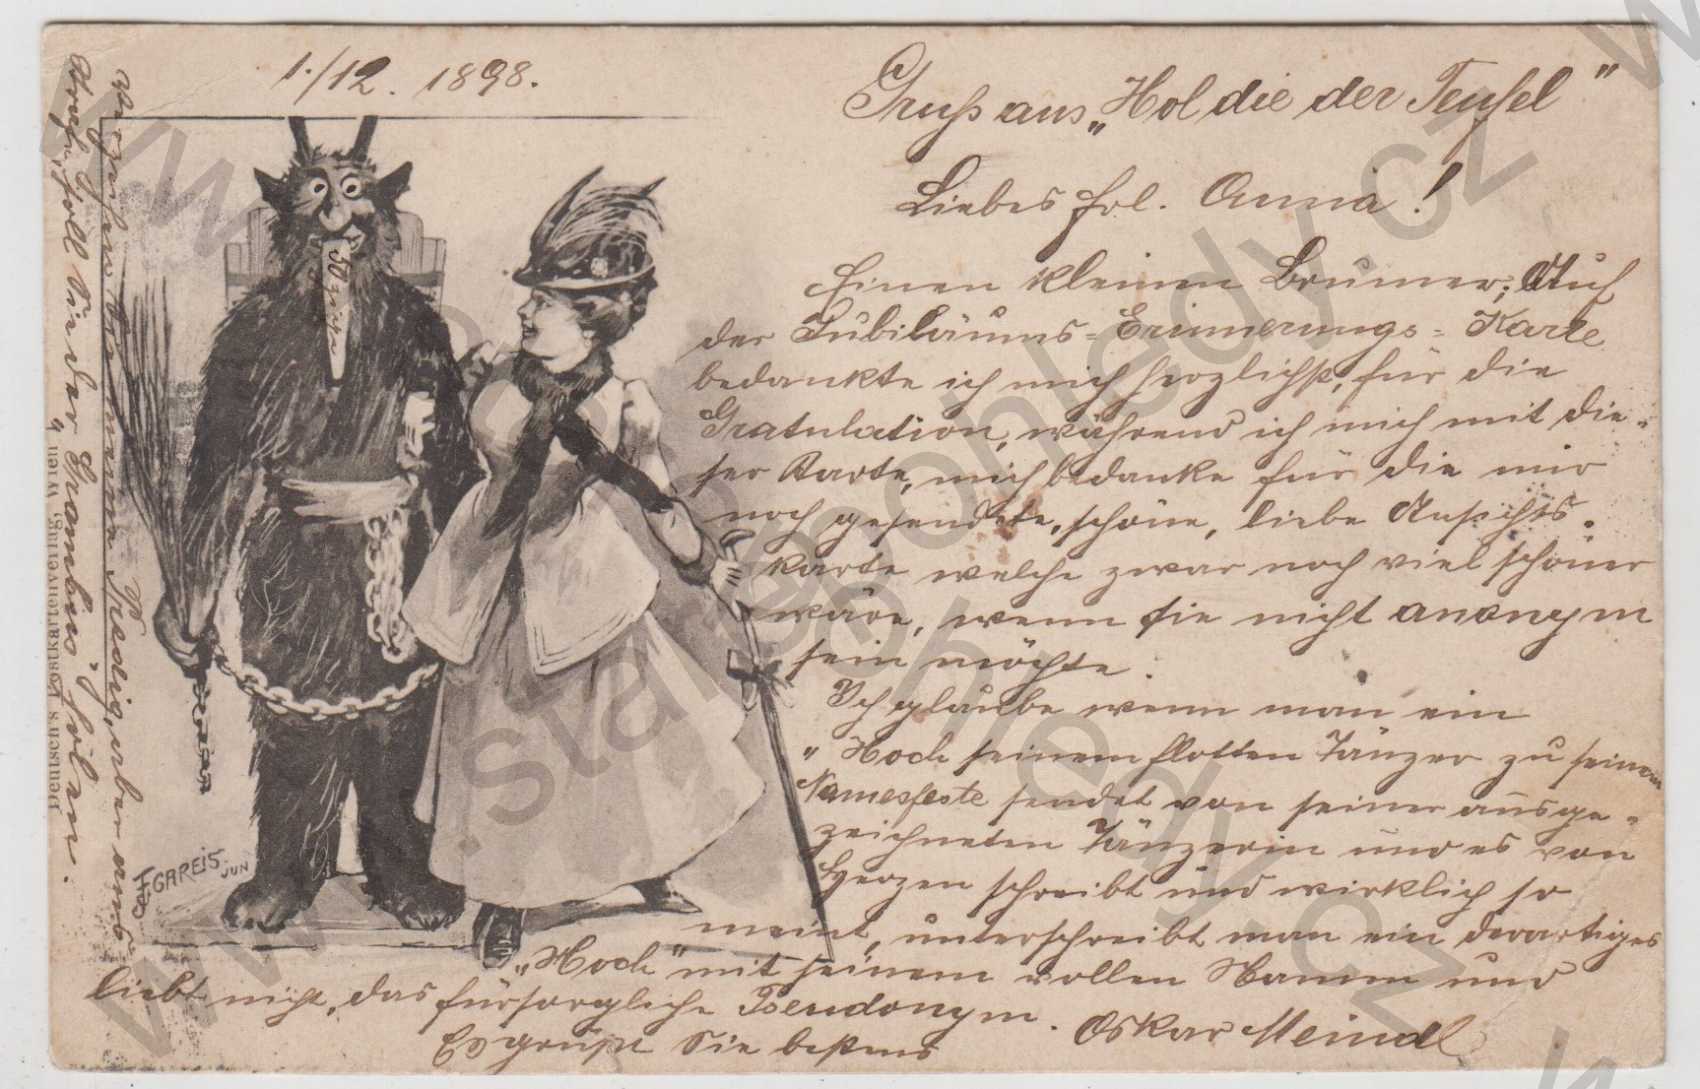 1./12. 1898.
Gruß aus „Hol die der Teufel"
Liebes Frl. Anna!
Einen kleinen Brumer; Auf
der Jubiläums-Erinnerungs-Karte
bedankte ich mich herzlichst, für die
Gratulation, während ich mich mit die-
ser Karte, mich bedanke für die mir
noch gesendete, schöne, liebe Ansichts-
karte, welche zwar noch viel schöner
wäre, wenn sie nicht anonym
sein möchte.
Ich glaube wenn man ein
„Hoch seinem flotten Tänzer zu seinem
Namesfeste sendet von seiner ausge-
zeichneten Tänzerin und es von
Herzen schreibt und wirklich so
meint, unterschreibt man ein derartiges
„Hoch" mit seinem vollen Namen und
liebt nicht, das fürsorgliche Pseudonym.
Es grüßt Sie bestens Oskar Meindl
50 
F. GAREIS JUN
Deutsch's Postkartenverlag, Wien
Strafe soll Sie der „Grambus" holen.
www.starepohledy.cz